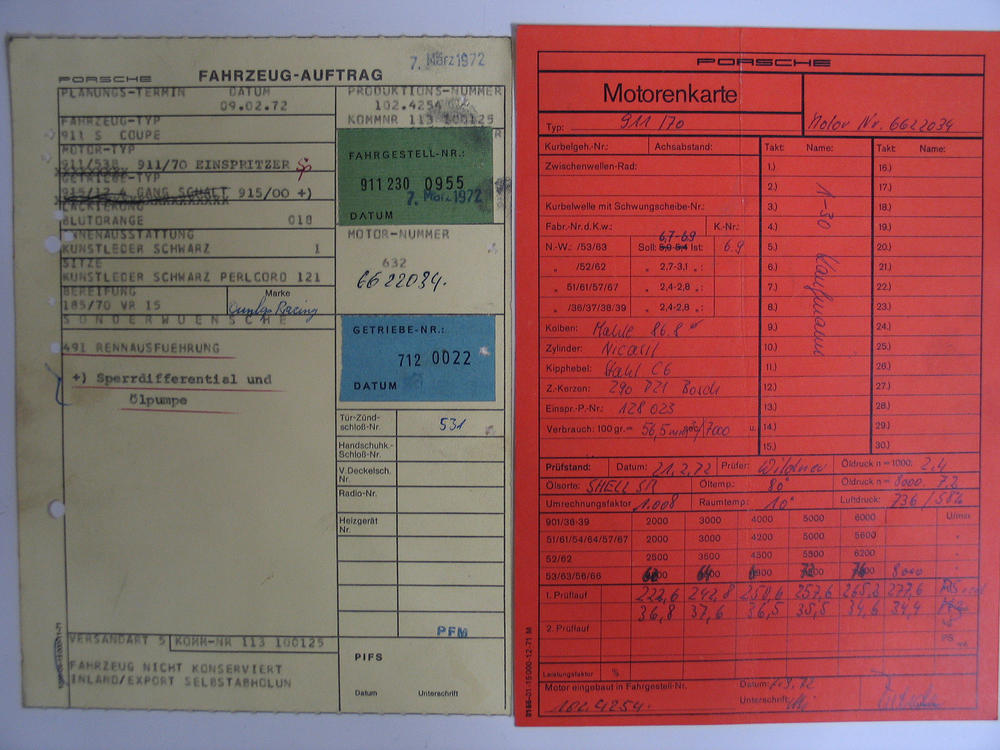 PORSCHE FAHRZEUG-AUFTRAG 7. März 1972
PLANUNGS-TERMIN DATUM
09.02.72
PRODUKTIONS-NUMMER
102.4254
KOMMNR 113 100125
FAHRZEUG-TYP
911 S COUPE
MOTOR-TYP
911/53B 911/70 EINSPRITZER
GETRIEBE-TYP
915/12 4 GANG SCHALT 915/00 +)
LACKIERUNG
BLUTORANGE 018
INNENAUSSTATTUNG
KUNSTLEDER SCHWARZ 1
SITZE
KUNSTLEDER SCHWARZ PERLCORD 121
BEREIFUNG
185/70 VR 15
Marke
Dunlop Racing
SONDERWUENSCHE
491 RENNAUSFUEHRUNG
+) Sperrdifferential und
Ölpumpe
FAHRGESTELL-NR.:
911 230 0955
7. März 1972
DATUM
MOTOR-NUMMER
632
6622034.
GETRIEBE-NR.:
712 0022
DATUM
Tür-Zünd-
schloß-Nr. 531
Handschuhk.-
Schloß-Nr.
V.Deckelsch.
Nr.
Radio-Nr.
Heizgerät
Nr.
PFM
VERSANDART 5 KOMM-NR 113 100125
FAHRZEUG NICHT KONSERVIERT
INLAND/EXPORT SELBSTABHOLUN
PIFS
Datum Unterschrift
PORSCHE
Motorenkarte
Typ: 911/70
Motor Nr. 6622034
Kurbelgeh.-Nr.: Achsabstand:
Zwischenwellen-Rad:
Kurbelwelle mit Schwungscheibe-Nr.:
Fabr.-Nr.d.K.w.: K.-Nr.:
6,7-6,9
N.-W.: /53/63 Soll: 5,0-5,4 Ist: 6.9
" /52/62 " 2,7-3,1 " :
" 51/61/57/67 " 2,4-2,8 " :
" /36/37/38/39 " 2,4-2,8 " :
Kolben: Mahle 86.8
Zylinder: Nicasil
Kipphebel: Stahl C6
Z.-Kerzen: 290 P21 Bosch
Einspr.-P.-Nr.: 128 023
Verbrauch: 100 gr.= 56,5 /7000 u.
Takt: Name: Takt: Name:
1.) 16.)
2.) 17.)
3.) 18.)
4.) 19.)
5.) 20.)
6.) 21.)
7.) 22.)
8.) 23.)
9.) 24.)
10.) 25.)
11.) 26.)
12.) 27.)
13.) 28.)
14.) 29.)
15.) 30.)
1-30 Kaufmann
Prüfstand: Datum: 21.2.72 Prüfer: Wildner Öldruck n = 1000: 2,4
Ölsorte: SHELL SR Öltemp.: 80° Öldruck n = 8000. 7.2
Umrechnungsfaktor 1.008 Raumtemp: 10° Luftdruck: 736 / 584
901/36-39 2000 3000 4000 5000 6000 U/min
51/61/54/64/57/67 2000 3000 4200 5000 5600 "
52/62 2500 3500 4500 5500 6200 "
53/63/56/66 8000
1. Prüflauf 222,6 242,8 250,6 257,6 265,2 277,6
36,8 37,6 36,5 35,5 34,6 34,4
2. Prüflauf PS
Leistungsfaktor %
Motor eingebaut in Fahrgestell-Nr. Datum:
102.4254. Unterschrift:
0186-01-15000-12-71 M